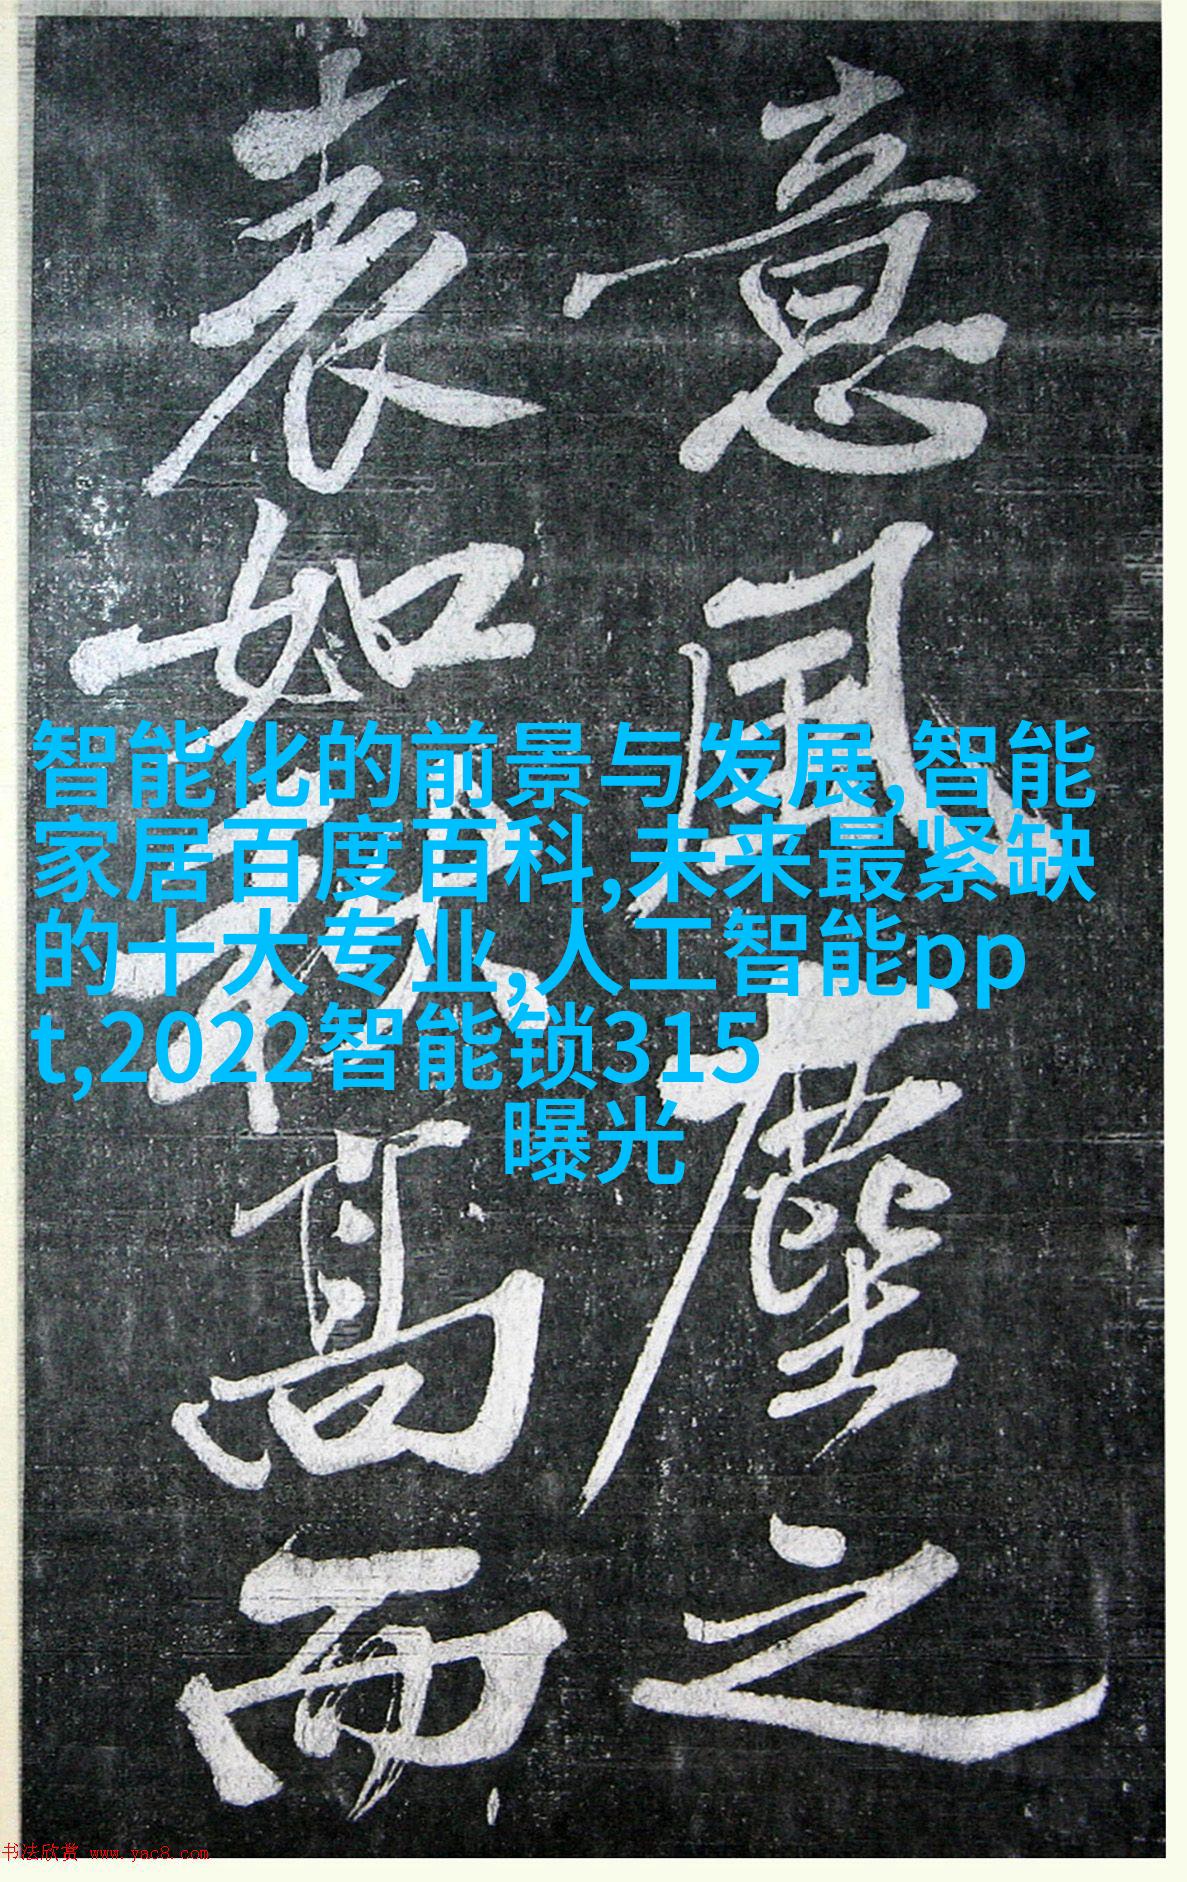 意風塵之
表如秋高而
智能化的前景与发展,智能
家居百度百科,未来最紧缺
的十大专业,人工智能pp
t,2022智能锁315
曝光
书法欣赏 www.yac8.com